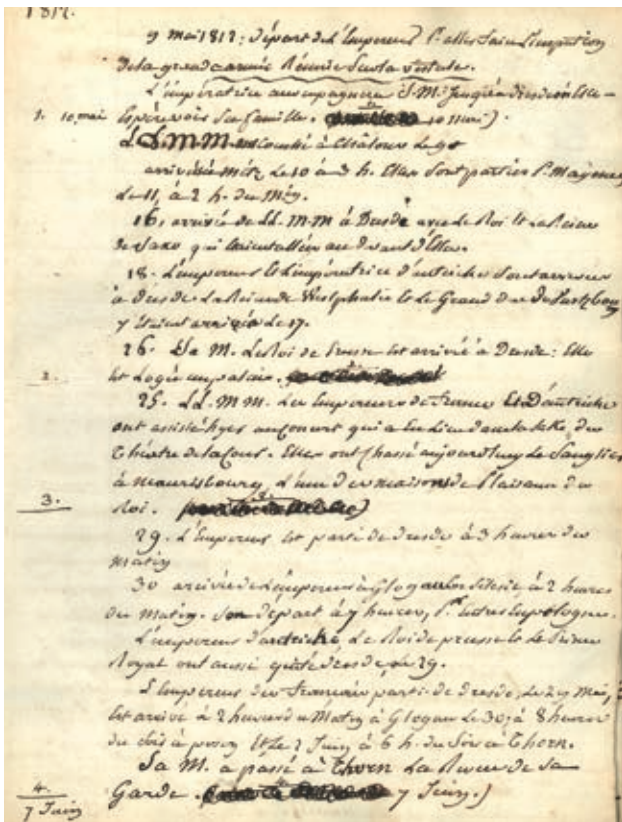 1812.
9 mai 1812: Départ de l'Empereur pr. aller faire l'inspection
de la grande armée Réunie sur la vistule.
L'impératrice accompagnera S. M. jusqu'à dresde où Elle
1. 10 mai Espère voir sa famille. 10 mai).
LL. M M. ont couché à châlons le 9
arrivées à Metz le 10 à 3 h. Elles sont parties pr. Mayence
le 11, à 2 h. du M
16, arrivée de LL. M M à Dresde avec le Roi et la Reine
de Saxe qui étaient allés au devant d'Elles.
18. L'empereur et l'impératrice d'autriche sont arrivés
à Dresde la Reine de Westphalie et le Grand duc de Wurtzbourg
y étaient arrivés le 17.
2. 26. Sa M. Le Roi de Prusse est arrivé à Dresde: Elle
est Logée au palais.
25. LL. M M. Les Empereurs de france Et D'autriche
ont assisté hyer au Concert qui a eu lieu dans la salle du
théâtre de la Cour. Elles ont Chassé aujourd'huy le Sanglier
à maurisbourg, l'une des maisons de Plaisance du
3. Roi.
29. L'Empereur est parti de dresde à 3 heures du
matin
30 arrivée de L'empereur à Glogau en Silésie, à 2 heures
du matin. Son départ à 7 heures, pr. Entrer en pologne.
L'empereur d'autriche, Le Roi de prusse et le Prince
Royal ont aussi quitté dresde le 29.
L'Empereur des français parti de dresde, le 29 Mai,
Est arrivé à 2 heures du Matin à Glogau le 30, à 8 heures
du soir à posen Et le 2 Juin, à 6 h. du Soir à Thorn.
Sa M. a passé à Thorn La Revue de Sa
4. Garde. 7 Juin.)
7 Juin